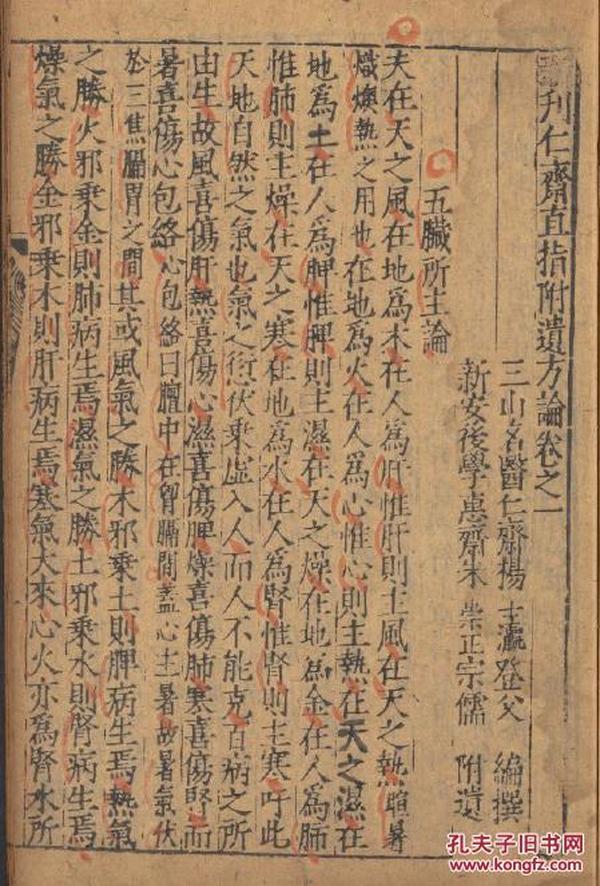 刊仁齋直指附遺方論卷之一
三山名醫仁齋楊 士瀛登父 編撰
新安後學惠齋朱 崇正宗儒 附遺
五臟所主論
夫在天之風在地爲木在人爲肝惟肝則主風在天之熱暄暑
熾燠熱之用也在地爲火在人爲心惟心則主熱在天之濕在
地爲土在人爲脾惟脾則主濕在天之燥在地爲金在人爲肺
惟肺則主燥在天之寒在地爲水在人爲腎惟腎則主寒吁此
天地自然之氣也氣之愆伏乘虛入人而人不能克百病之所
由生故風喜傷肝熱喜傷心濕喜傷脾燥喜傷肺寒喜傷腎而
暑喜傷心包絡心包絡曰膻中在胷膈間蓋心主暑故暑氣伏
於三焦膈胃之間其或風氣之勝木邪乘土則脾病生焉熱氣
之勝火邪乘金則肺病生焉濕氣之勝土邪乘水則腎病生焉
燥氣之勝金邪乘木則肝病生焉寒氣大來心火亦爲腎水所
孔夫子旧书网
www.kongfz.com